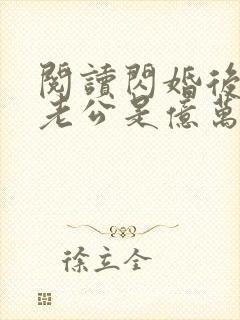 閱讀閃婚後
老公是億萬
徐立全